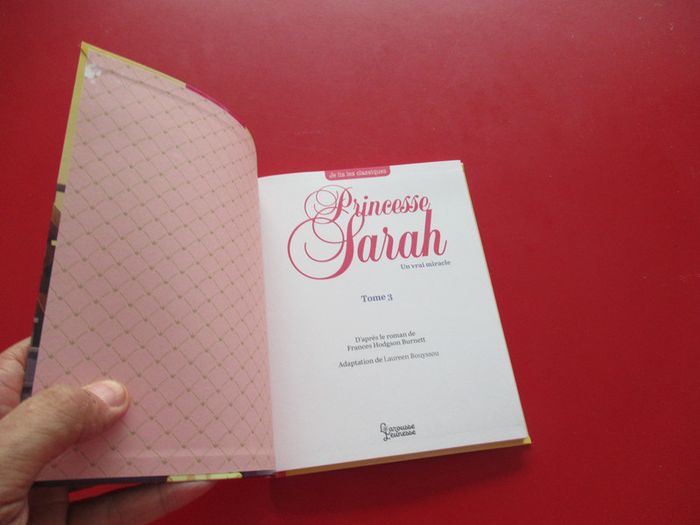 Je lis les classiques
Princesse
Sarah
Un vrai miracle
Tome 3
D'après le roman de
Frances Hodgson Burnett
Adaptation de Laureen Bouyssou
Larousse
Jeunesse